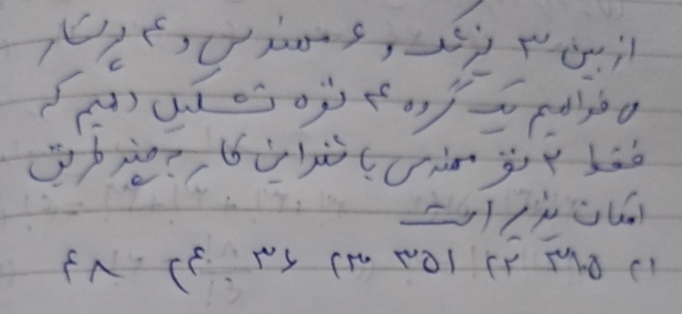 از بین ۳ پزشک و ۶ مهندس و ۴ پرستار
می خواهیم یک گروه ۴ نفره تشکیل دهیم که
فقط ۲ نفر مهندس باشند این کار به چند طریق
امکان پذیر است
۱) ۳۱۵ ۲) ۳۵۱ ۳) ۳۶ ۴) ۴۸